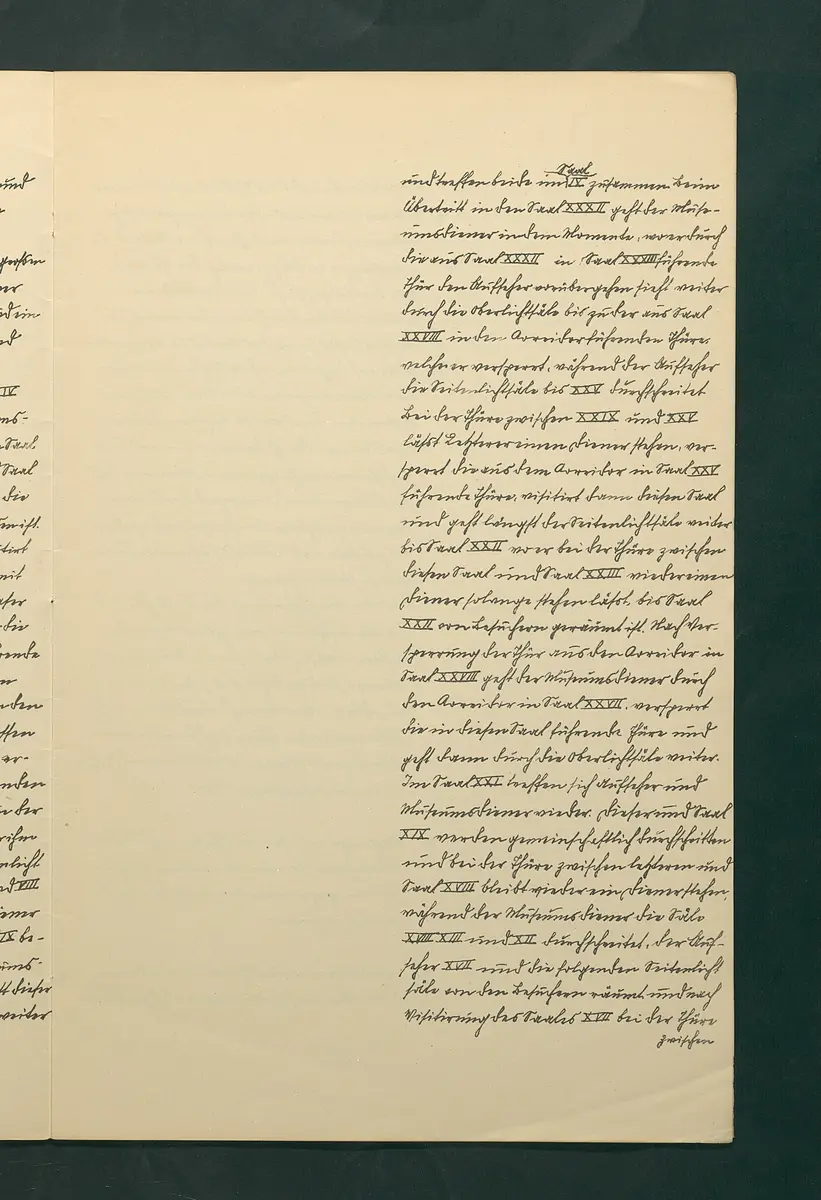 und
großen
und
IV
Saal
Saal
die
ist.
mit
die
den
er-
der
VIII
IX be-
dieser
weiter
Saal
und treffen beide im IX zusammen. Beim
Übertritt in den Saal XXXII geht der Muse-
umsdiener in dem Momente, wo er durch
die aus Saal XXXII in Saal XXXIII führende
Thür den Aufseher vorübergehen sieht weiter
durch die Oberlichtsäle bis zu der aus Saal
XXVIII in den Corridor führenden Thüre,
welche er versperrt, während der Aufseher
die Seitenlichtsäle bis XXV durchschreitet
Bei der Thüre zwischen XXIX und XXV
läßt Letzterer einen Diener stehen, ver-
sperrt die aus dem Corridor in Saal XXV
führende Thüre, visitirt dann diesen Saal
und geht längst der Seitenlichtsäle weiter
bis Saal XXII wo er bei der Thüre zwischen
diesen Saal und Saal XXIII wieder einen
Diener solange stehen läßt, bis Saal
XXII von Besuchern geräumt ist. Nach Ver-
sperrung der Thür aus den Corridor in
Saal XXVIII geht der Museumsdiener durch
den Corridor in Saal XXVII, versperrt
die in diesen Saal führende Thüre und
geht dann durch die Oberlichtsäle weiter.
Im Saal XXI treffen sich Aufseher und
Museumsdiener wieder. Dieser und Saal
XIX werden gemeinschaftlich durchschritten
und bei der Thüre zwischen letzteren und
Saal XVIII bleibt wieder ein Diener stehen,
während der Museumsdiener die Säle
XVIII XIII und XII durchschreitet, der Auf-
seher XVII und die folgenden Seitenlicht
säle von den Besuchern räumt und nach
Visitirung des Saales XVII bei der Thüre
zwischen